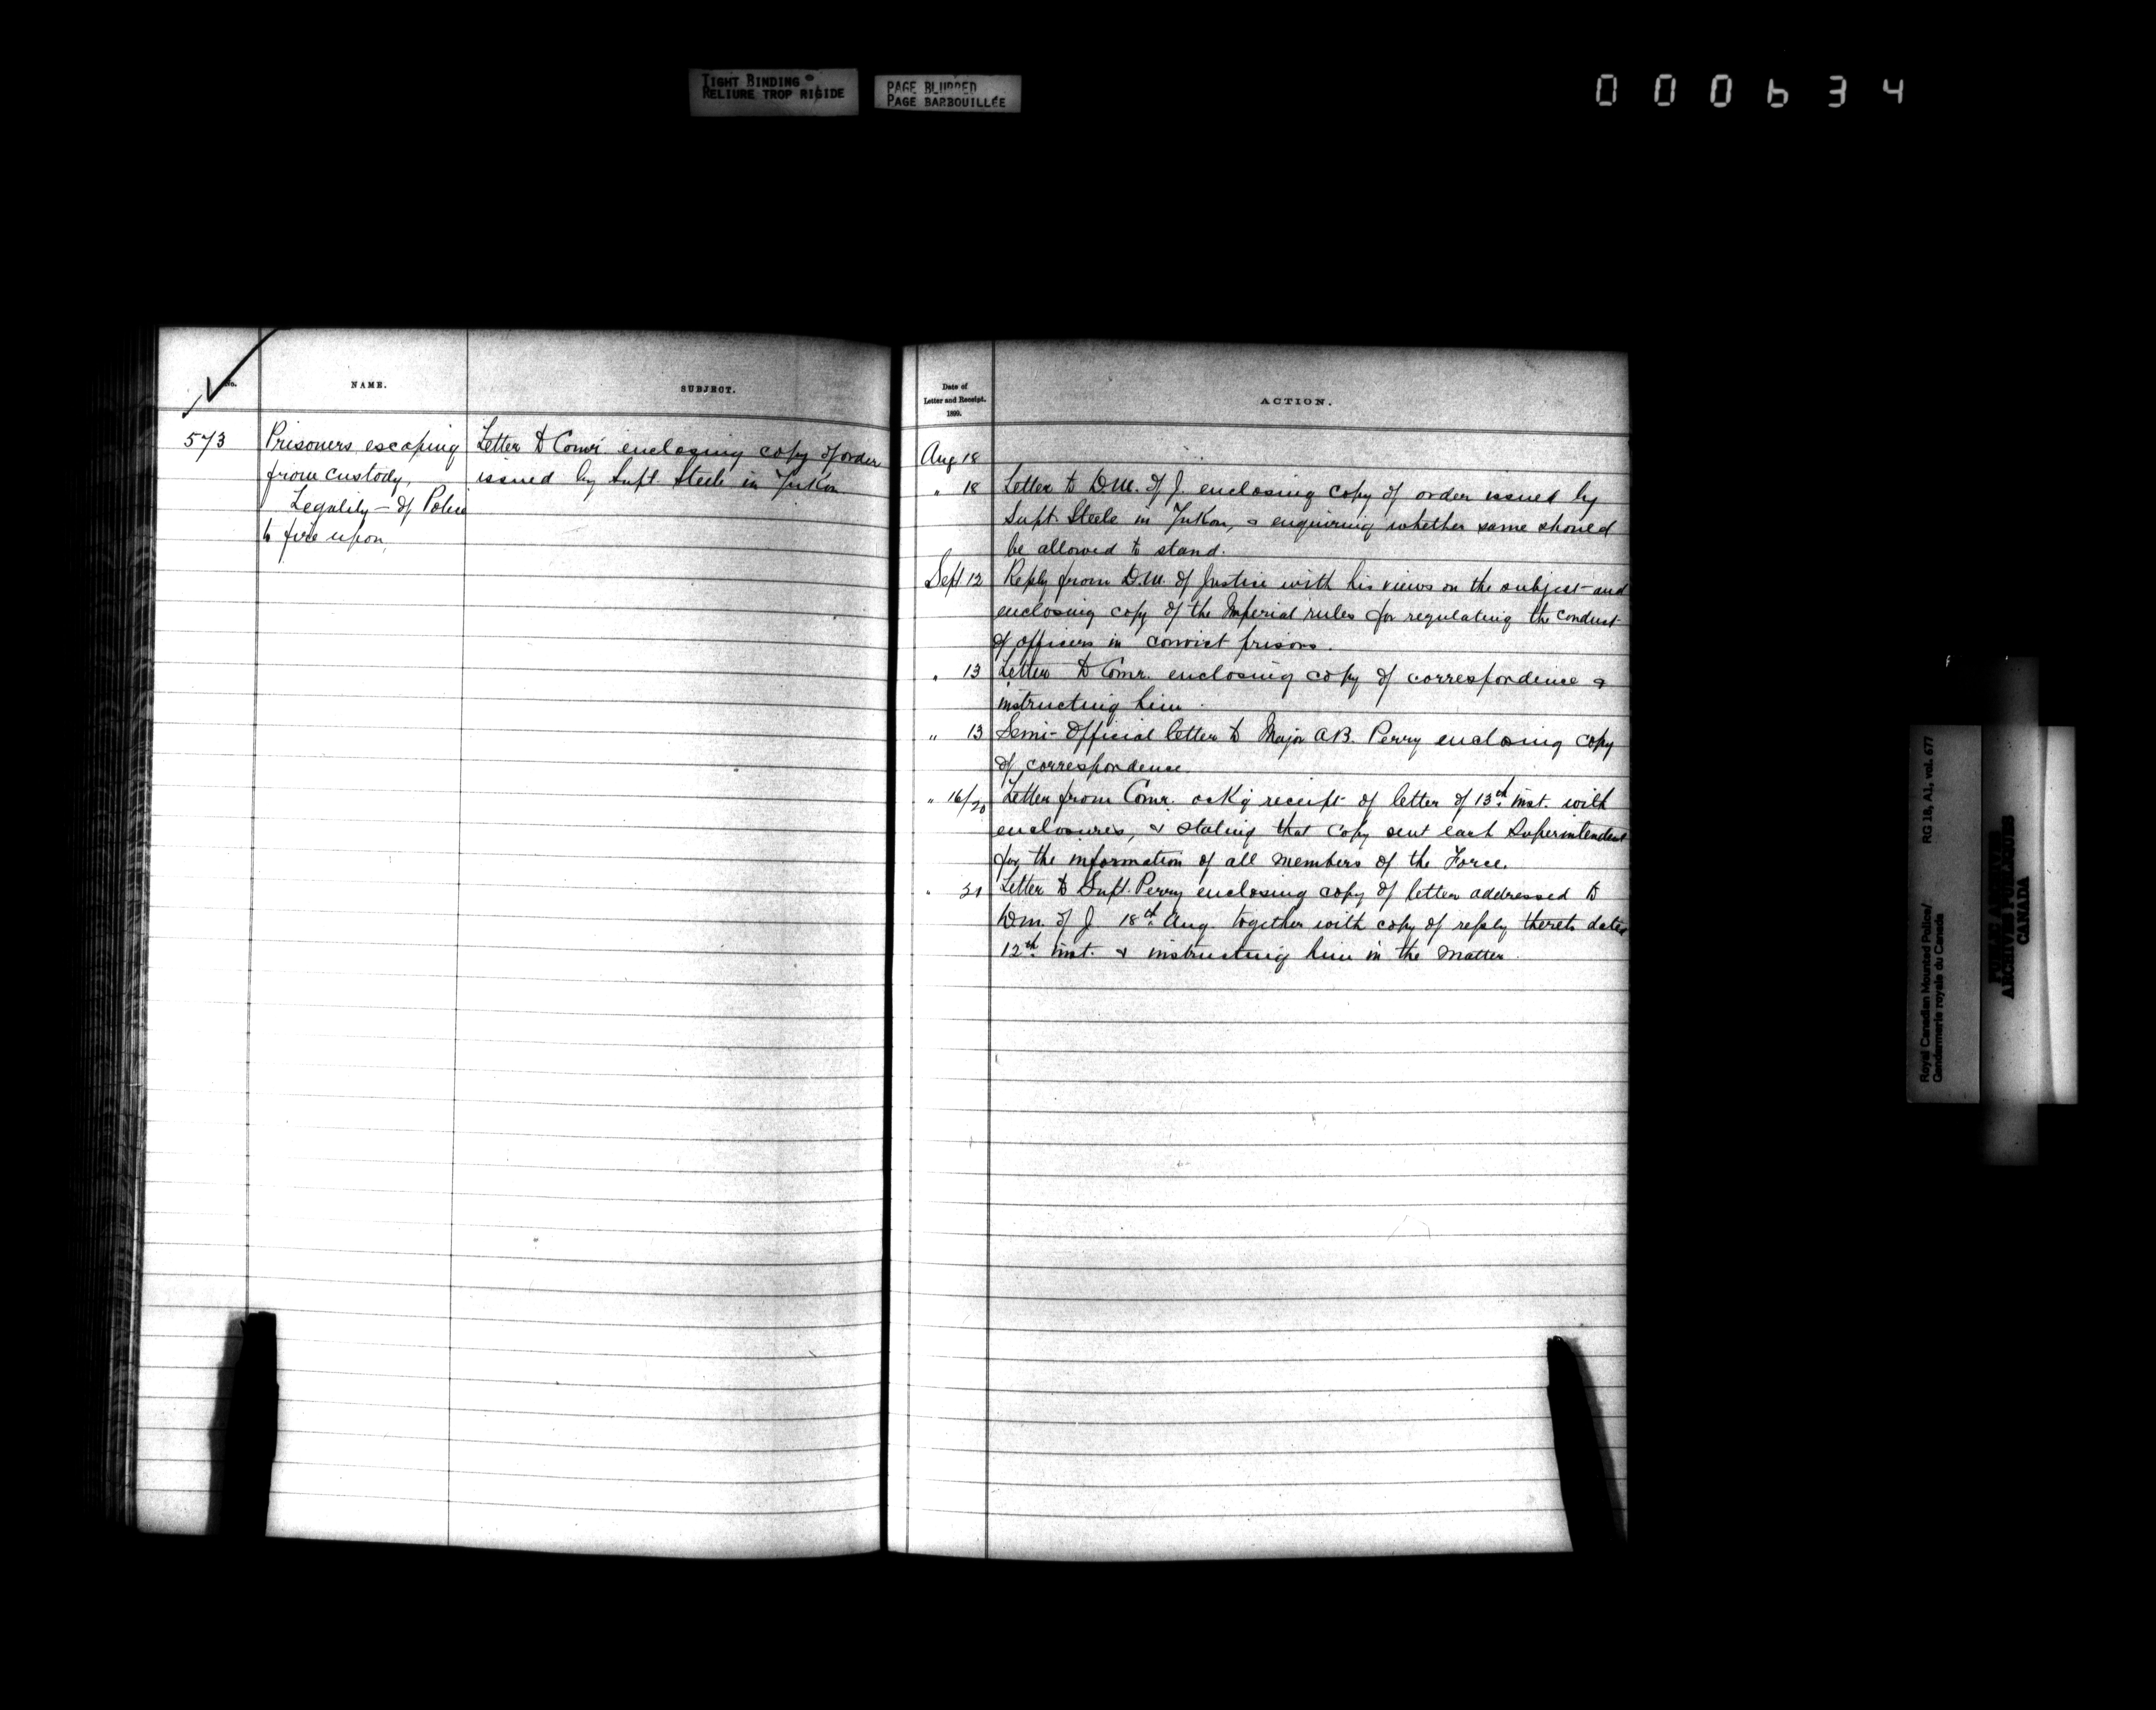 TIGHT BINDING
RELIURE TROP RIGIDE
PAGE BLURRED
PAGE BARBOUILLÉE
000634
No.
NAME.
SUBJECT.
573
Prisoners escaping
from custody,
Legality – of Police
to fire upon,
Letter to Comr. enclosing copy of order
issued by Supt. Steele in Yukon
Date of
Letter and Receipt.
1899.
ACTION.
Aug 18
" 18 Letter to D.M. of J. enclosing copy of order issued by
Supt. Steele in Yukon, & enquiring whether same should
be allowed to stand.
Sept 12 Reply from D.M. of Justice with his views on the subject and
enclosing copy of the Imperial rules for regulating the conduct
of officers in convict prisons.
" 13 Letter to Comr. enclosing copy of correspondence &
instructing him.
" 13 Semi-Official letter to Major A.B. Perry enclosing copy
of correspondence.
" 16/20 Letter from Comr. ackg receipt of letter of 13th inst. with
enclosures, & stating that copy sent each Superintendent
for the information of all members of the Force.
" Letter to Supt. Perry enclosing copy of letter addressed to
D.M. of J 18th Aug. together with copy of reply thereto dated
12th inst. & instructing him in the matter.
Royal Canadian Mounted Police/
Gendarmerie royale du Canada
RG 18, A1, vol. 677
PUBLIC ARCHIVES
ARCHIVES PUBLIQUES
CANADA